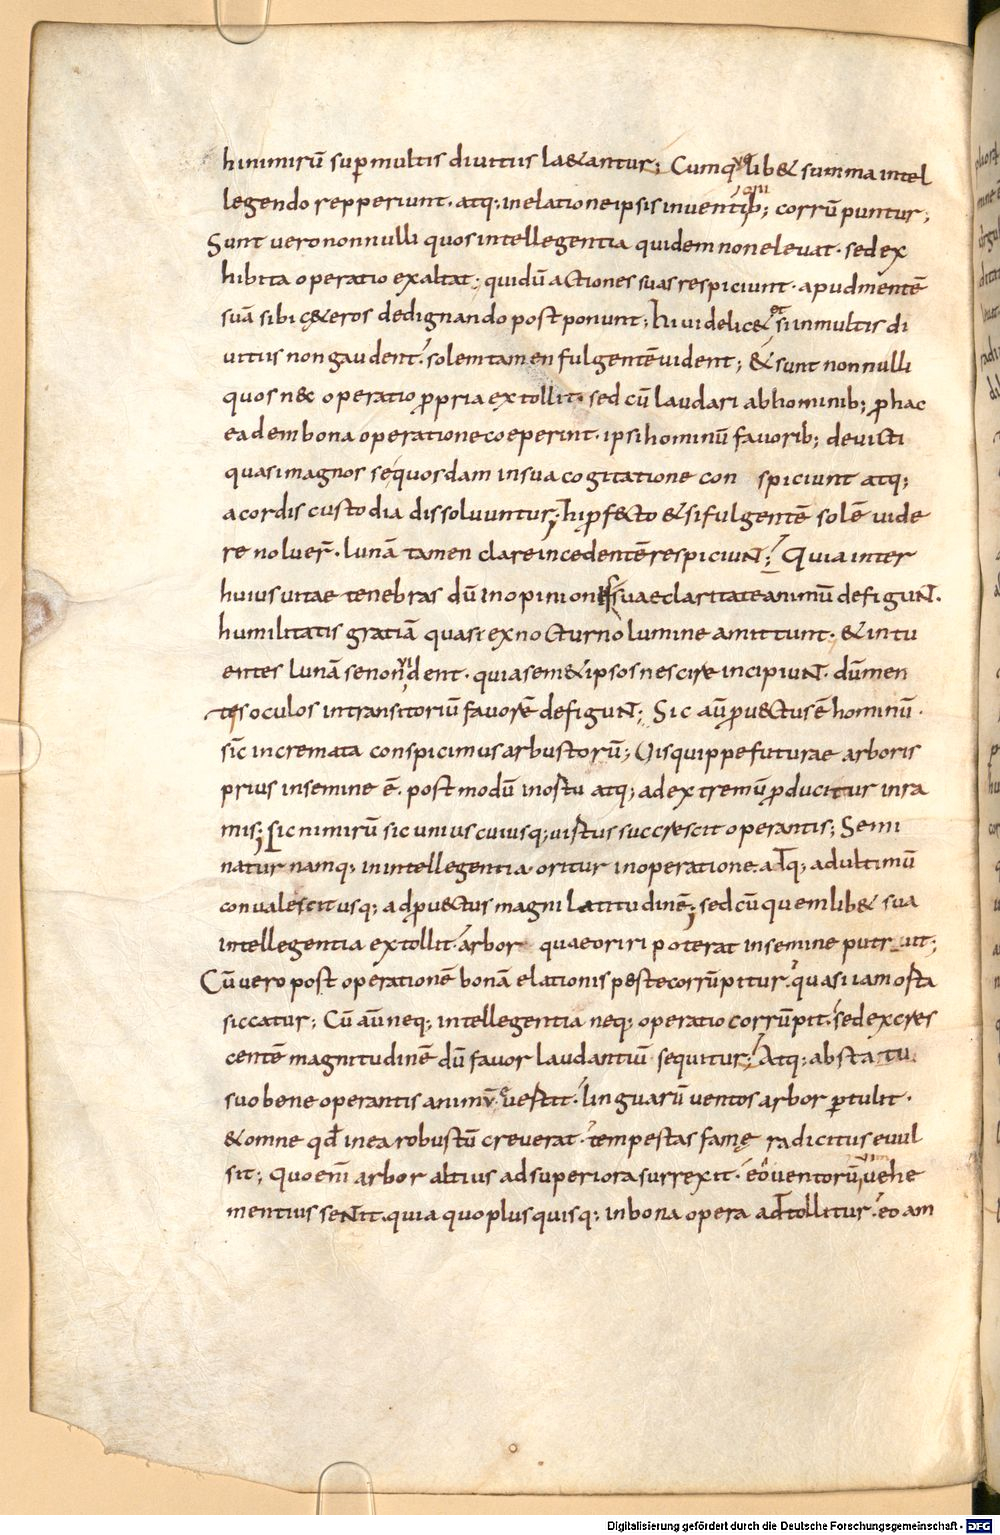 hi nimirū sup multis diuitiis la&antur; Cumq; lib& summa intel
legendo repperiunt. atq; in elatione ipsis inuentib; corrūpuntur;
Sunt uero nonnulli quos intellegentia quidem non eleuat. sed ex
hibita operatio exaltat; qui dū actiones suas respiciunt. apud mentē
suā sibi c&eros dedignando postponunt; hi uidelic& & si in multis di
uitiis non gaudent. solem tamen fulgentē uident; & sunt nonnulli
quos nec operatio ppria extollit. sed cū laudari ab hominib; p hac
eadem bona operatione coeperint. ipsi hominū fauorib; deuicti
quasi magnos se quosdam in sua cogitatione con spiciunt atq;
a cordis custodia dissoluuntur; hi pfecto & si fulgentē solē uide
re noluer̄. lunā tamen clare incedentē respiciunt; Quia inter
huius uitae tenebras dū in opinionis suae claritate animū defigunt.
humilitatis gratiā quasi ex nocturno lumine amittunt. & intu
entes lunā se non uident. quia semet ipsos nescire incipiunt. dū men
tes oculos in transitoriū fauorē defigunt; Sic aū puectus ē hominū.
sīc incremata conspicimus arbustorū; Qisquippe futurae arboris
prius in semine ē. postmodū in ostu atq; ad extremū pducitur in ra
mis; sic nimirū sic uniuscuiusq; uistus succrescit operantis; Semi
natur namq; in intellegentia. oritur in operatione. atq; ad ultimū
conualescit usq; ad puectus magni latitudinē; sed cū quemlib& sua
intellegentia extollit. arbor quae oriri poterat in semine putruit;
Cū uero post operationē bonā elationis peste corrūpitur. quasi iam osta
siccatur; Cū aū neq; intellegentia neq; operatio corrūpit. sed excres
centē magnitudinē dū fauor laudantiū sequitur; Atq; ab statu
suo bene operantis animū euestit. linguarū uentos arbor ptulit.
& omne qd in ea robustū creuerat. tempestas famę radicitus euul
sit; Quo enī arbor altius ad superiora surrexit. eo uentorū uim uehe
mentius sentit. quia quo plus quisq; in bona opera adtollitur. eo am